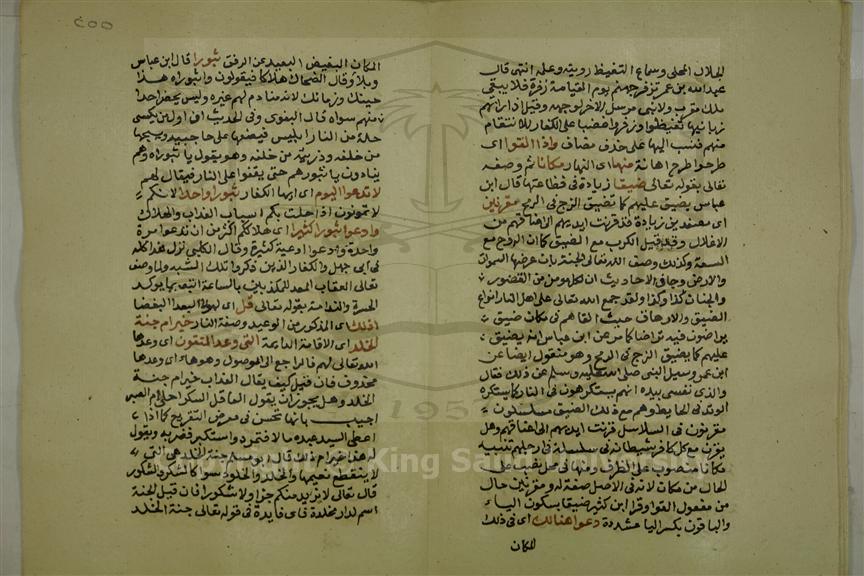 الجلال المحلى وسماع التغيظ رويته وعلمه انتهى قال
عبد الله بن عمر تزفر جهنم يوم القيامة زفرة فلا يبقى
ملك مقرب ولا نبى مرسل الا خر لوجهه وقيل اذا راتهم
زبانيها تغيظوا وزفروا غضبا على الكفار للانتقام
منهم فنسب اليها على حذف مضاف واذا القوا اى
طرحوا طرح اهانة منها اى النار مكانا ثم وصفه
تعالى بقوله تعالى ضيقا زيادة فى فظاعتها قال ابن
عباس يضيق عليهم كما تضيق الزج فى الرمح مقرنين
اى مصفدين زيادة قد قرنت ايديهم الى اعناقهم من
الاغلال وقيل الكرب مع الضيق كما ان الروح مع
السعة وكذلك وصف الله تعالى الجنة بان عرضها السموات
والارض وجاء فى الاحاديث ان لكل مومن من القصور
والجنات كذا وكذا ولقد جمع الله تعالى على اهل النار انواع
الضيق والارهاق حيث القاهم فى مكان ضيق
يتراصون فيه تراصا كما مر عن ابن عباس انه يضيق
عليهم كما يضيق الزج فى الرمح وهو منقول ايضا عن
ابن عمر وسيل النبى صلى الله عليه وسلم عن ذلك فقال
والذى نفسى بيده انهم يستكرهون فى النار كما يستكره
الوتد فى الحايط وهم مع ذلك الضيق مسلسلون
مقرنون فى السلاسل قرنت ايديهم الى اعناقهم وقيل
يقرن مع كل كافر شيطانه فى سلسلة فى ارجلهم تنبيه
مكانا منصوب على الظرف ومنها فى محل نصب على
الحال من مكان لانه فى الاصل صفة له ومقرنين حال
من مفعول القوا وقرا ابن كثير ضيقا بسكون الياء
والباقون بكسر اليا مشددة دعوا هنالك اى فى ذلك
المكان
٢٥٥
المكان البغيض البعيد عن الرفق ثبورا قال ابن عباس
ويلا وقال الضحاك هلاكا فيقولون واثبوراه هذا
حينك وزمانك لانه منادم لهم غيره وليس يحضر احدا
منهم سواه قال البغوى وفى الحديث ان اول من يكسى
حلة من النار ابليس فيضعها على حاجبيه ويسحبها
من خلفه وذريته من خلفه وهو يقول يا ثبوراه وهم
ينادون يا ثبورهم حتى يقفوا على النار فيقال لهم
لا تدعوا اليوم اى ايها الكفار ثبورا واحدا لانكم
لا تموتون اذا حلت بكم اسباب العذاب والهلاك
وادعوا ثبورا كثيرا اى هلاككم اكثر من ان تدعوا مرة
واحدة وادعوا ادعية كثيرة وقال الكلبى نزل هذا كله
فى ابى جهل والكفار الذين ذكروا تلك الشبه ولما وصف
تعالى العقاب المعد للمكذبين بالساعة اتبعه بما يوكد
الحسرة والندامة بقوله تعالى قل اى لهولا البعدا البغضا
اذلك اى المذكور من الوعيد وصفة النار خير ام جنة
الخلد اى الاقامة الدايمة التى وعد المتقون اى وعدها
الله تعالى لهم فالراجع الى الموصول وهو هاء اى وعدها
محذوف فان قيل كيف يقال العذاب خير ام جنة
الخلد وهل يجوز ان يقول العاقل السكر احلى ام الصبر
اجيب بانها تحسن فى معرض التقريع كما اذا
اعطى السيد عبده مالا فتمرد واستكبر فضربه ويقول
له هذا خير ام ذلك قال ابو مسلم جنة الخلد هى التى
لا ينقطع نعيمها والخلد والخلود سوا كالشكر والشكور
قال تعالى لا نريد منكم جزا ولا شكورا فان قيل الجنة
اسم لدار مخلدة فاى فايدة فى قوله تعالى جنة الخلد